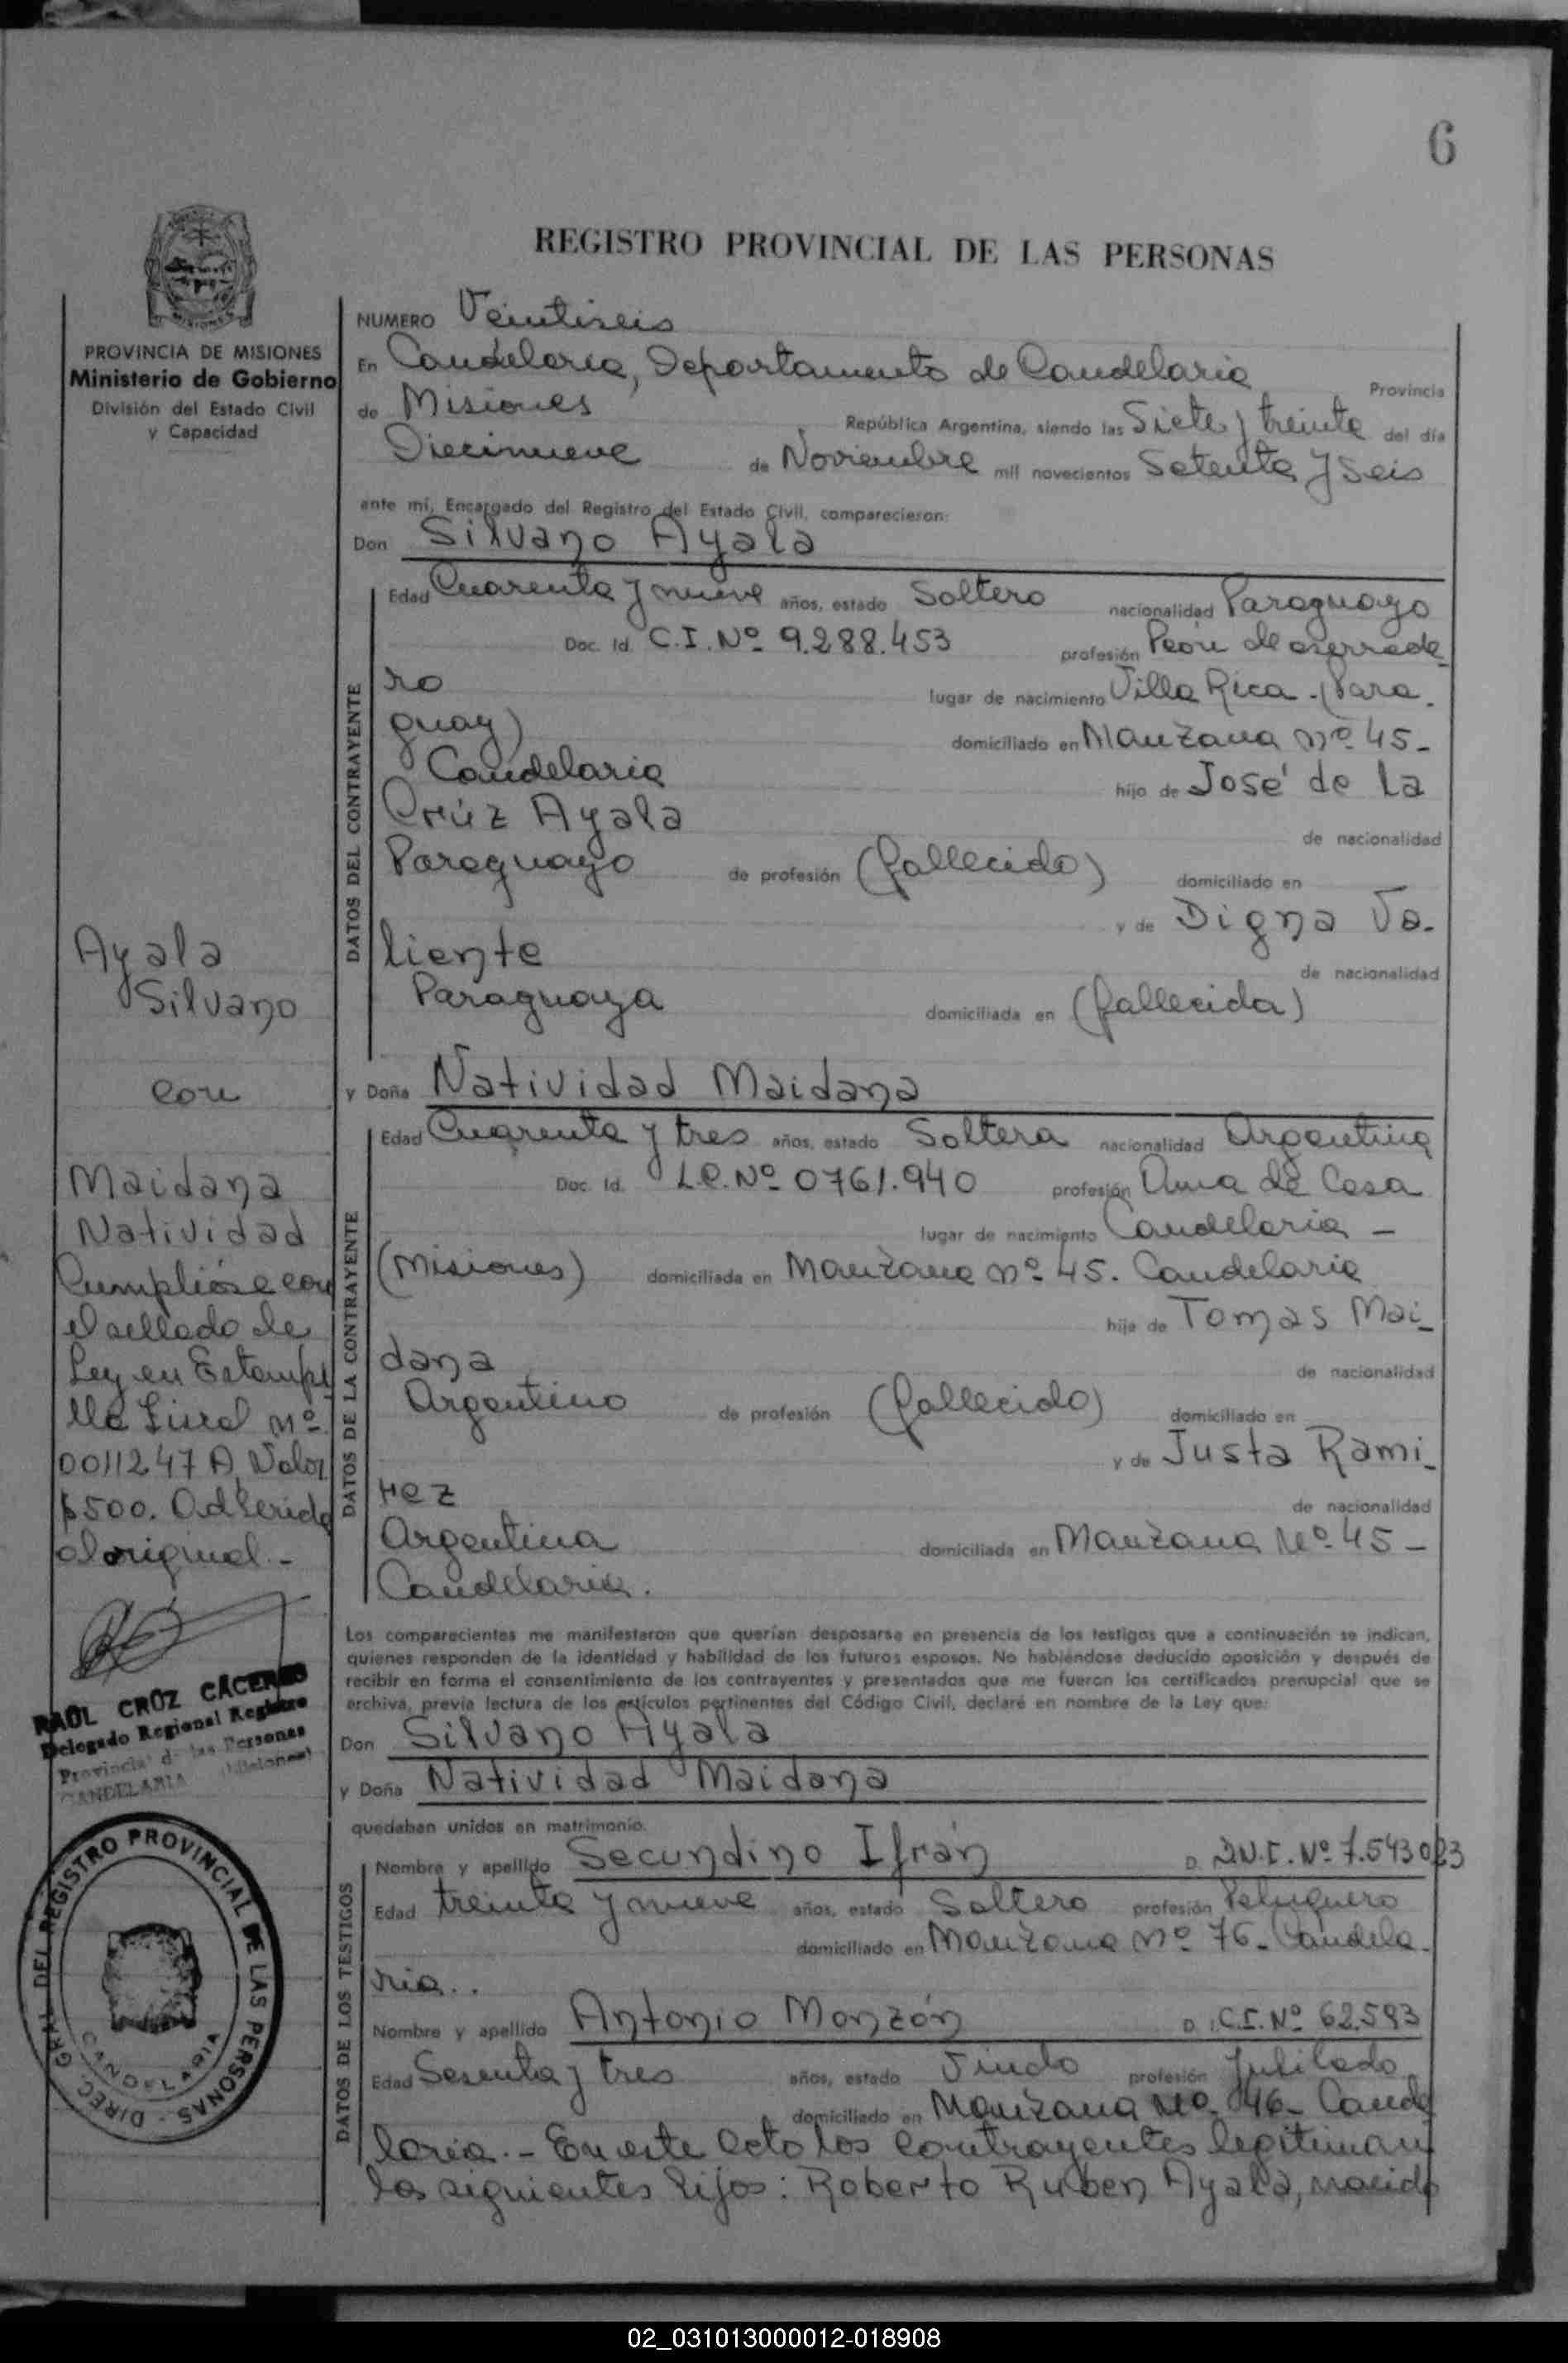 6
REGISTRO PROVINCIAL DE LAS PERSONAS
PROVINCIA DE MISIONES
Ministerio de Gobierno
División del Estado Civil
y Capacidad
NUMERO Veintiseis
En Candelaria, Departamento de Candelaria Provincia
de Misiones República Argentina, siendo las Siete y treinta del día
Diecinueve de Noviembre mil novecientos Setenta y Seis
ante mí, Encargado del Registro del Estado Civil, comparecieron:
Don Silvano Ayala
DATOS DEL CONTRAYENTE
Edad Cuarenta y nueve años, estado Soltero nacionalidad Paraguayo
Doc. Id. C.I. Nº 9.288.453 profesión Peón de aserrade_
ro lugar de nacimiento Villa Rica - (Para_
guay) domiciliado en Manzana nº 45-
Candelaria hijo de José de La
Crúz Ayala de nacionalidad
Paraguayo de profesión (fallecido) domiciliado en
y de Digna Va_
liente de nacionalidad
Paraguaya domiciliada en (fallecida)
y Doña Natividad Maidana
DATOS DE LA CONTRAYENTE
Edad Cuarenta y tres años, estado Soltera nacionalidad Argentina
Doc. Id. L.C. Nº 0761.940 profesión Ama de Casa
lugar de nacimiento Candelaria -
(Misiones) domiciliada en Manzana nº 45. Candelaria
hija de Tomas Mai_
dana de nacionalidad
Argentino de profesión (fallecido) domiciliado en
y de Justa Rami_
rez de nacionalidad
Argentina domiciliada en Manzana Nº 45-
Candelaria.
Los comparecientes me manifestaron que querían desposarse en presencia de los testigos que a continuación se indican,
quienes responden de la identidad y habilidad de los futuros esposos. No habiéndose deducido oposición y después de
recibir en forma el consentimiento de los contrayentes y presentados que me fueron los certificados prenupcial que se
archiva, previa lectura de los artículos pertinentes del Código Civil, declaré en nombre de la Ley que:
Don Silvano Ayala
y Doña Natividad Maidana
quedaban unidos en matrimonio.
DATOS DE LOS TESTIGOS
Nombre y apellido Secundino Ifrán D. D.N.I. Nº 7.543023
Edad treinta y nueve años, estado Soltero profesión Peluquero
domiciliado en Manzana nº 76- Candela_
ria..
Nombre y apellido Antonio Monzón D. I. C.I. Nº 62.593
Edad Sesenta y tres años, estado Viudo profesión Jubilado
domiciliado en Manzana Nº 46- Cande
laria.- En este acto los contrayentes legitiman
los siguientes hijos: Roberto Ruben Ayala, nacido
Ayala
Silvano
con
Maidana
Natividad
Cumplióse con
el sellado de
Ley en Estampi
lla Fiscal Nº
0011247 A, Valor
$500. Adherido
al original.-
RAÚL CRÚZ CÁCERES
Delegado Regional Registro
Provincial de las Personas
CANDELARIA (Misiones)
DIREC. GRAL. DEL REGISTRO PROVINCIAL DE LAS PERSONAS -
CANDELARIA
02_031013000012-018908